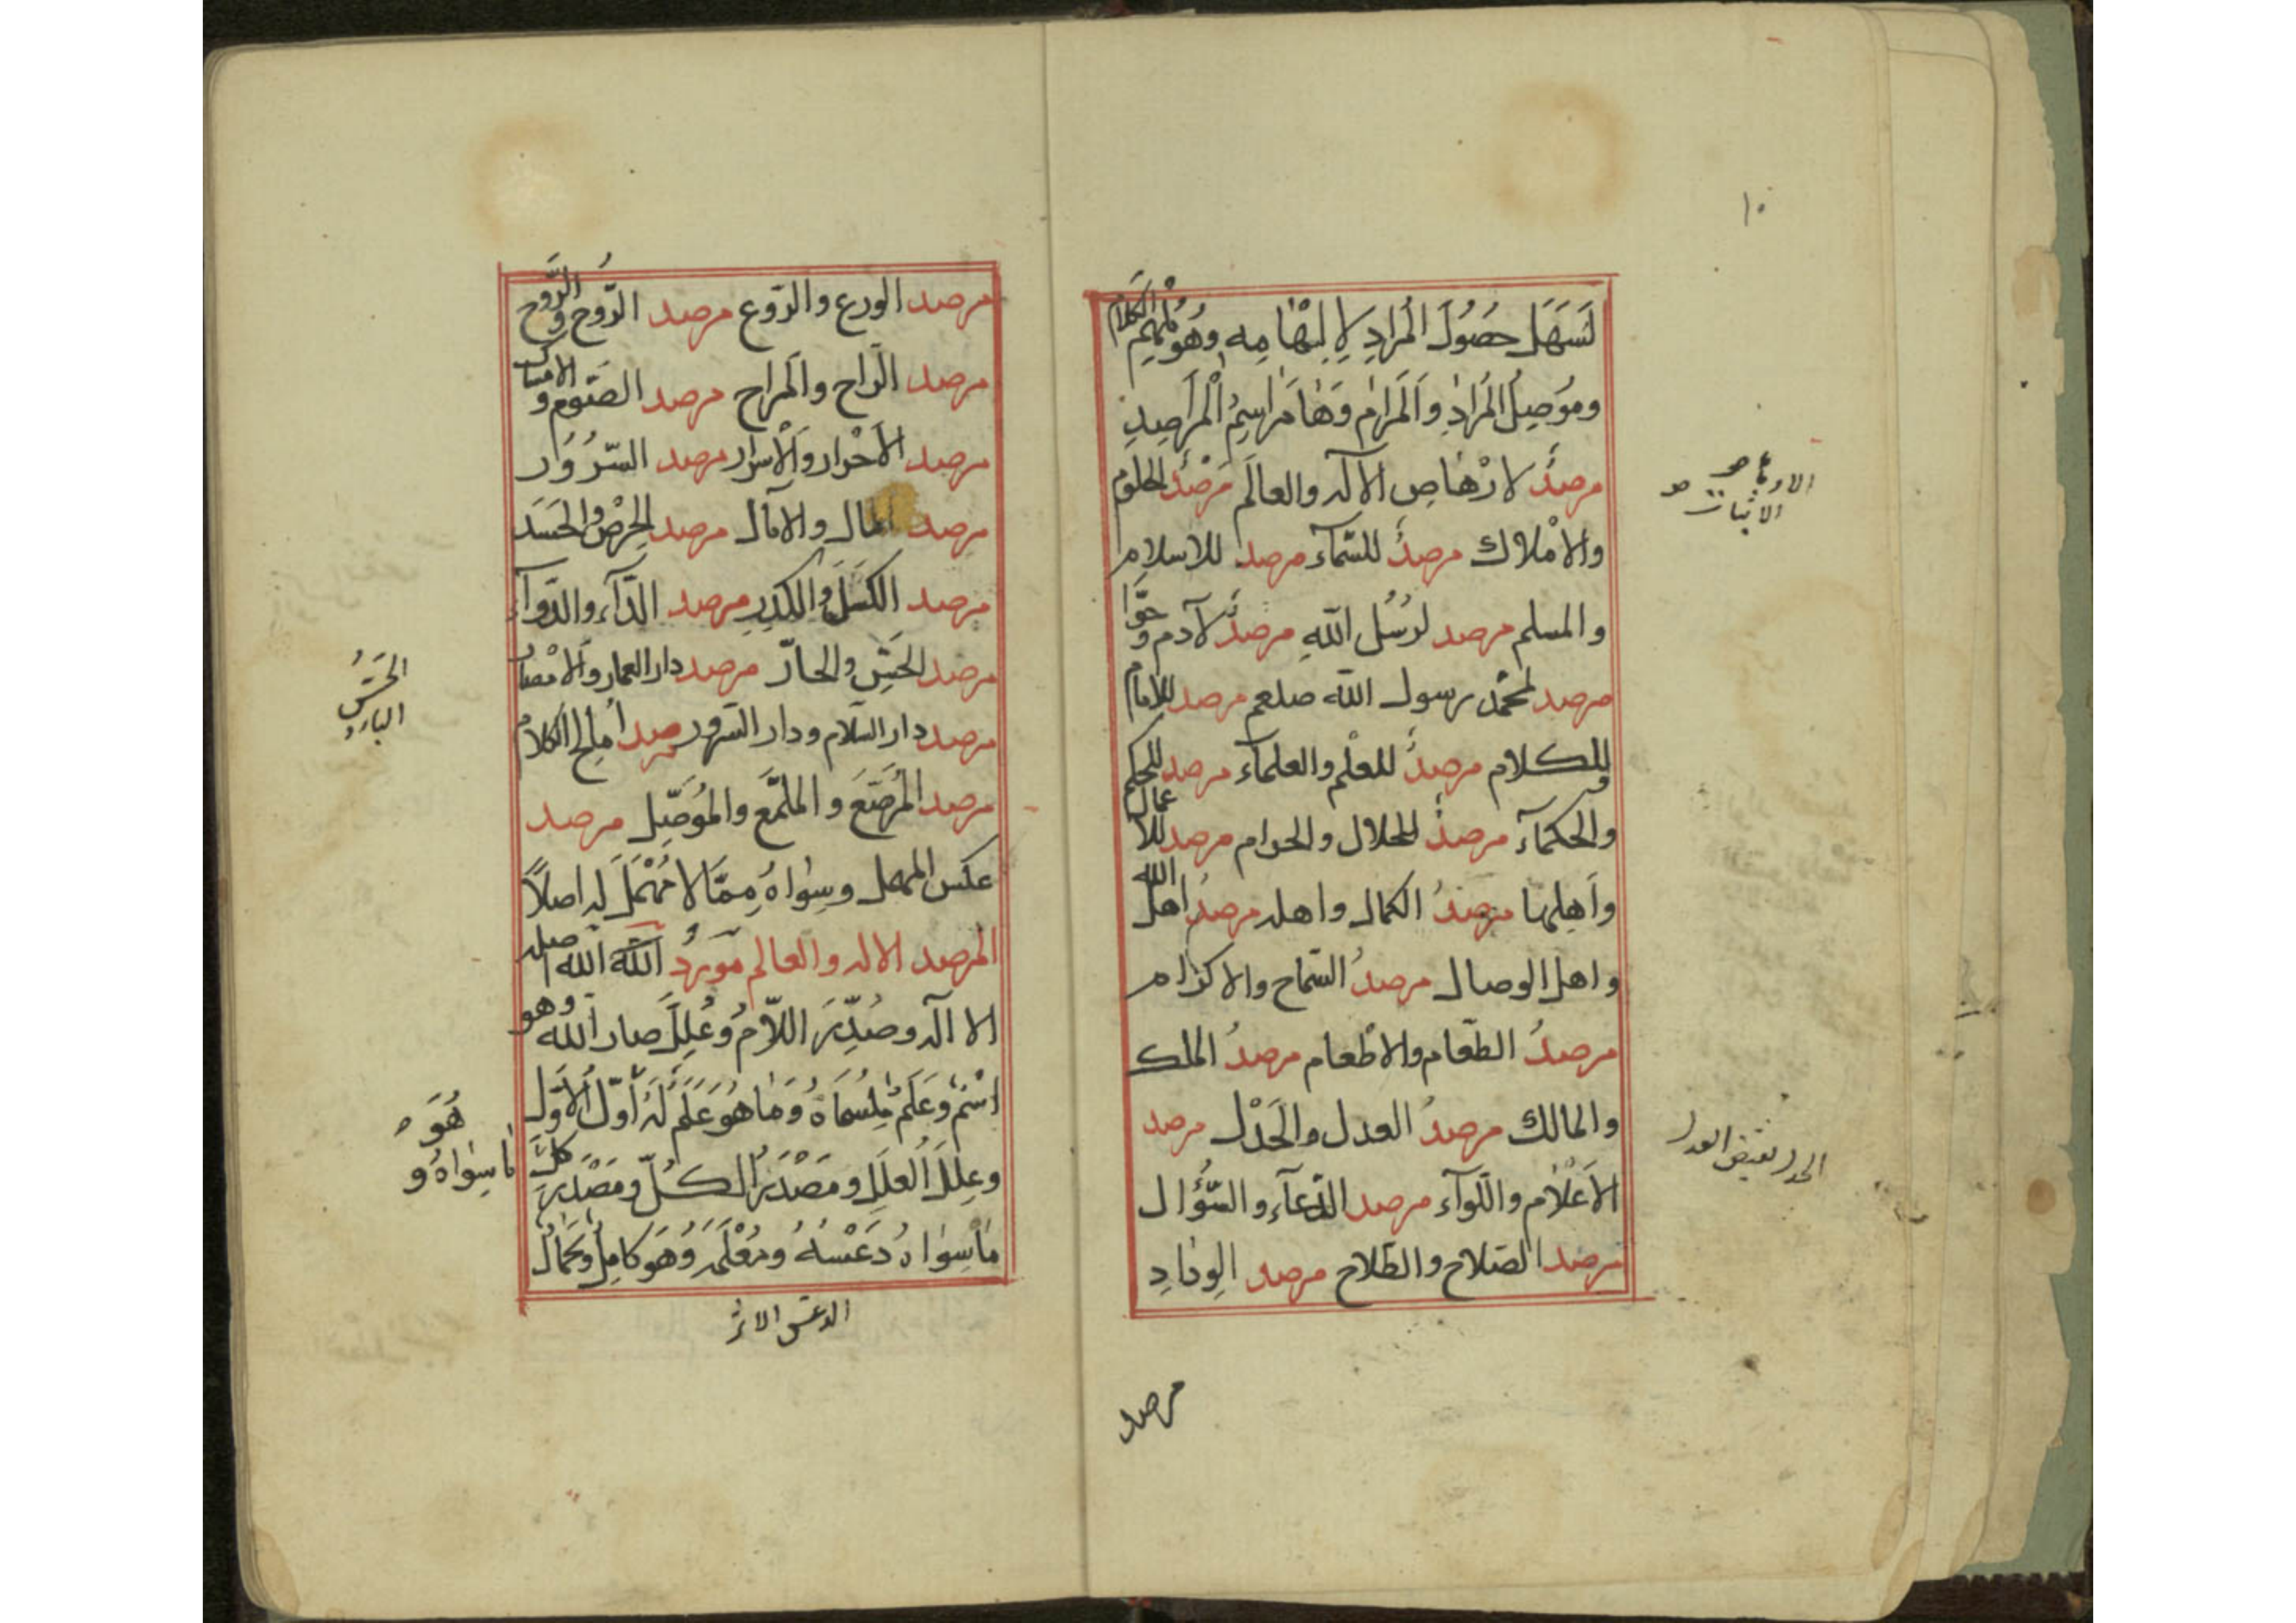 ١٠
لَسَهَلَ حصُولَ المُرادِ لإلْهَامِهِ وهُوَ مُلْهِمُ الكَلَام
ومُوصِلُ المُرَادِ والمَرَام وَهَا مَرَاسِمُ المَرَاصِدِ
مرصدٌ لارْهَاصِ الآله والعالَم مَرْصَدٌ لِلعلوم
والامْلاك مرصدٌ للسّمآء مرصد للاسلام
والمسلم مرصد لرُسُل الله مرصدٌ لآدم وحوّا
مرصد لمحمّد رسول الله صلعم مرصد للامام
وللكلام مرصدٌ للعلم والعلمآء مرصد للحكم
والحكمآء مرصدٌ للحلال والحرام مرصد للاعمال
واَهلها مرصدُ الكمال واهله مرصدُ اهل الله
واهل الوصال مرصدُ السّماح والاكرام
مرصدُ الطّعام والاطْعام مرصدُ الملك
والمالك مرصدُ العدل والحَدْل مرصد
الاَعْلام واللّوآء مرصد الدّعآء والسُّؤال
مرصد الصّلاح والطّلاح مرصد الوِدَادِ
مرصد
الارهاص
الاثبات
الحدل نقيض العدل
مرصد الورع والرّوع مرصد الرَّوح والرُّوح
مرصد الرّاح والمَراح مرصد الصّوم والامساك
مرصد الاَحْرار والاَسْرار مرصد السّرُور
مرصد المال والآمال مرصد الحِرْص والحَسَد
مرصد الكَسَل والكَدَر مرصد الدّآء والدّوآء
مرصد الحَسّ والحارّ مرصد دار العمار والامْصار
مرصد دار السّلام ودار السّرور مرصد اُملح الكلام
مرصد المُرَصَّع والملمَّع والمُوَصَّل مرصد
عكس المهمل وسِوَاهُ مِمّا لا مُهْمَلَ له اصلاً
المرصد الاله والعالم مَوْرِدُ اللّه الله اصله
الا آله وصُدِّرَ اللّام وعُلِّلَ صار الله وهو
اسْمٌ وعَلَمٌ لِمُسَمّاهُ وَمَا هُوَ عَلَمٌ لَهُ اَوّلُ الاَوّل
وعِلَلُ العِلَلِ ومَصْدَرُ الكُلّ ومَصْدَرُ كلّ
مَا سِوَاهُ دَعْسُهُ ومَعْلَمُهُ وَهُوَ كامِلٌ وكَمَالُ
الحَسُّ
البارد
هُوَ
مَا سِوَاهُ و
الدعس الاثر